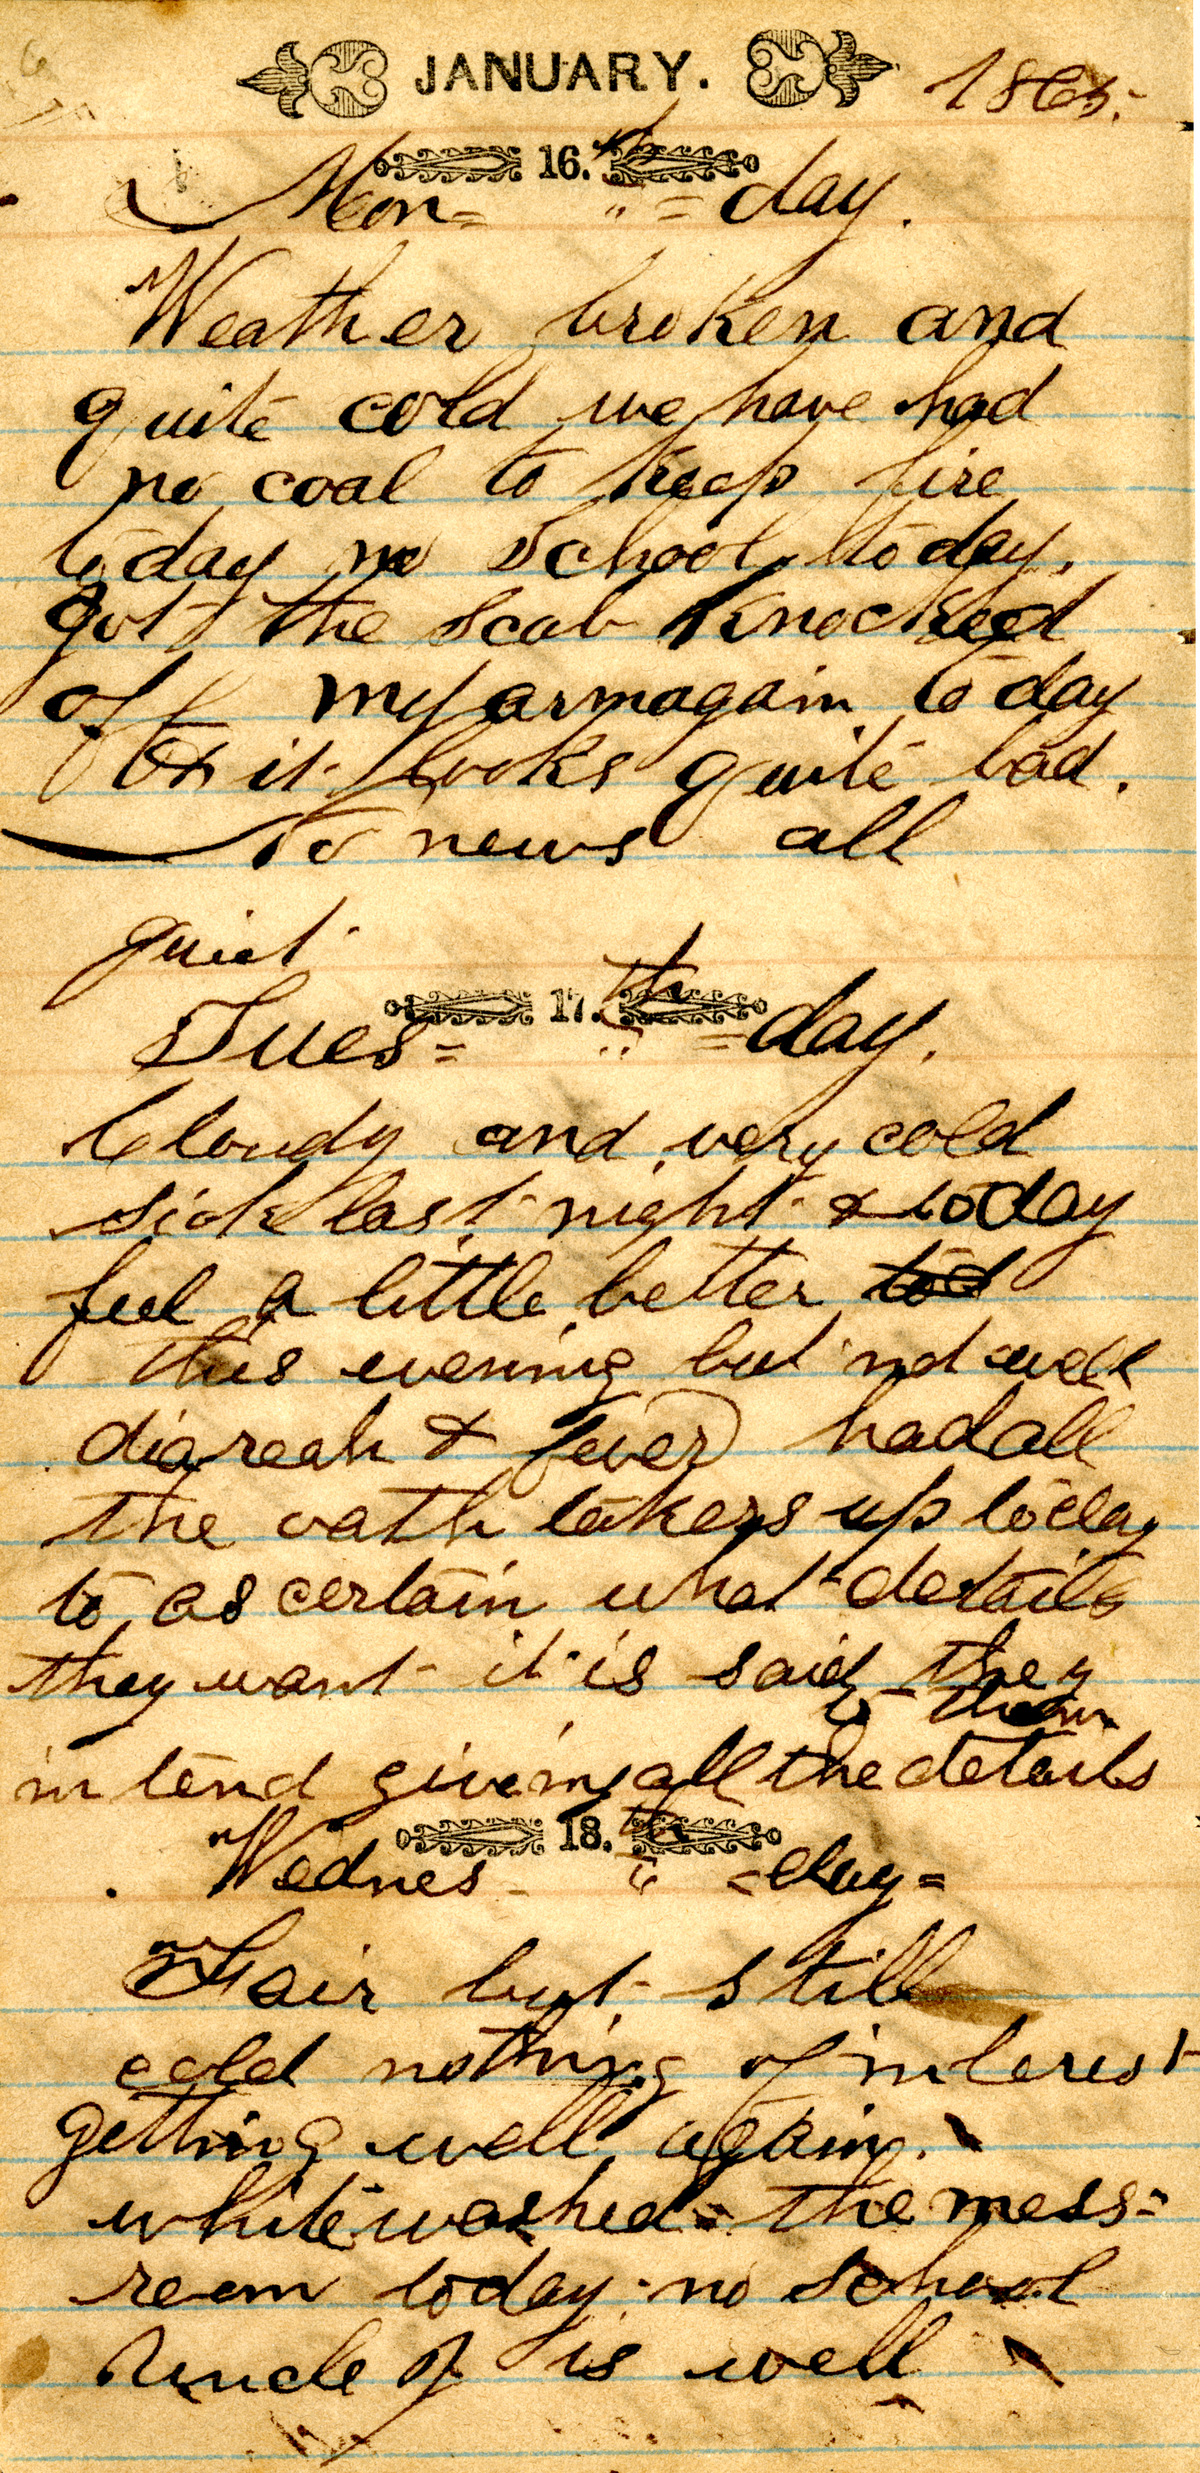 JANUARY. 1865.
16.th
Mon= " = day.
Weather broken and
quite cold we have had
no coal to keep fire
today no school today.
got the scab knocked
off my arm again today
& it looks quite bad.
No news all
quiet.
17.th
Tues= " = day.
Cloudy and very cold
sick last night & today
feel a little better tod
this evening but not well
diareah & fever had all
the oath takers up today
to ascertain what details
they want it is said they
to them
intend giving all the details
18.th
Wednes- " = day =
Fair but still
cold nothing of interest
getting well again.
whitewashed the mess=
room today. no school
Uncle J is well